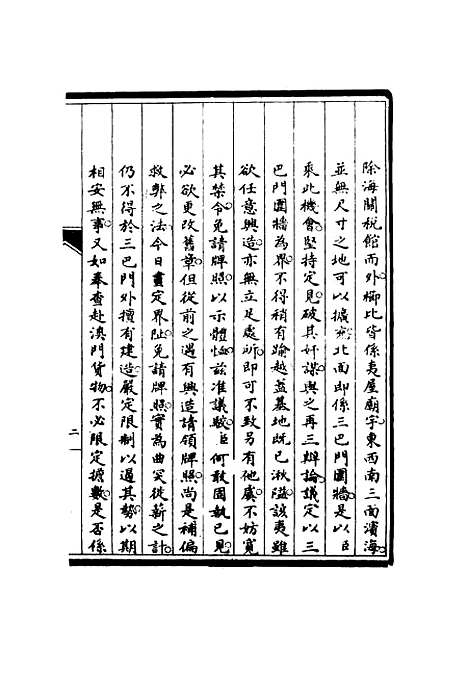 除海關税館而外櫛比皆係夷屋廟宇東西南三面濱海
並無尺寸之地可以擴充北面即係三巴門圍牆是以臣
乘此機會堅持定見破其奸謀與之再三辯論議定以三
巴門圍牆為界不得稍有踰越蓋基地既已湫隘該夷雖
欲任意興造亦無立足處所即可不致另有他虞不妨寬
其禁令免請牌照以示體恤兹准議駮臣何敢固執已見
必欲更改舊章但從前之遇有興造請領牌照尚是補偏
救弊之法今日畫定界址免請牌照實為曲突徙薪之計
仍不得於三巴門外擅有建造嚴定限制以遏其勢以期
相安無事又如奉查赴澳門貨物不必限定擔數是否係
二